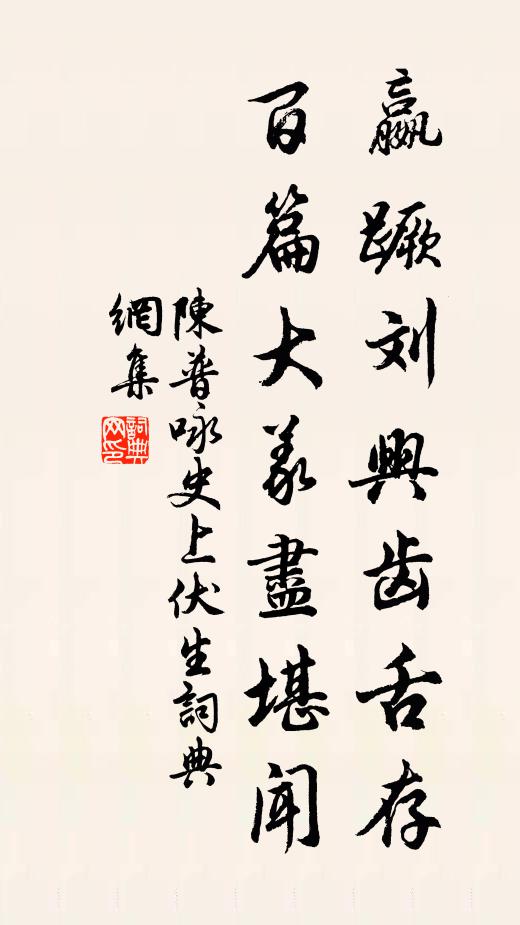 嬴蹶刘興齿舌存
百篇大義盡堪聞
陳普咏史上伏生詞典
網集
詞典网印